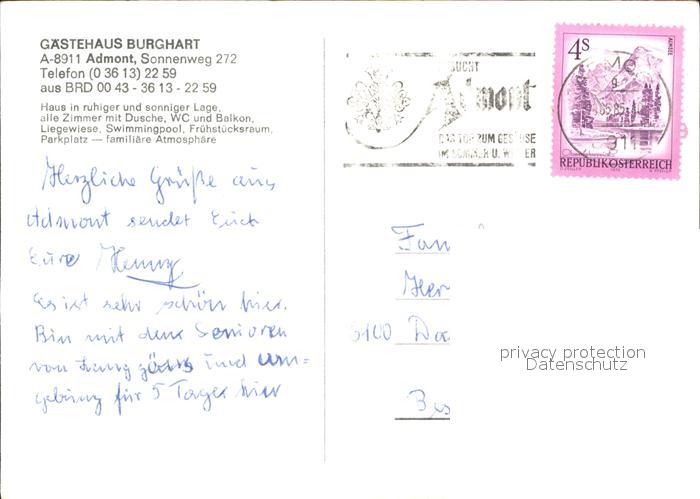 GÄSTEHAUS BURGHART
A-8911 Admont, Sonnenweg 272
Telefon (0 36 13) 22 59
aus BRD 00 43 - 36 13 - 22 59
Haus in ruhiger und sonniger Lage,
alle Zimmer mit Dusche, WC und Balkon,
Liegewiese, Swimmingpool, Frühstücksraum,
Parkplatz — familiäre Atmosphäre
Herzliche Grüße aus
Admont sendet Euch
Eure Henny
Es ist sehr schön hier.
Bin mit den Senioren
von und Um=
gebung für 5 Tage hier
SUCHT
Admont
DAS TOR ZUM GESÄUSE
IM SOMMER U. WINTER
4S
ALMSEE
REPUBLIK ÖSTERREICH
Fam
Her
5100
privacy protection
Datenschutz